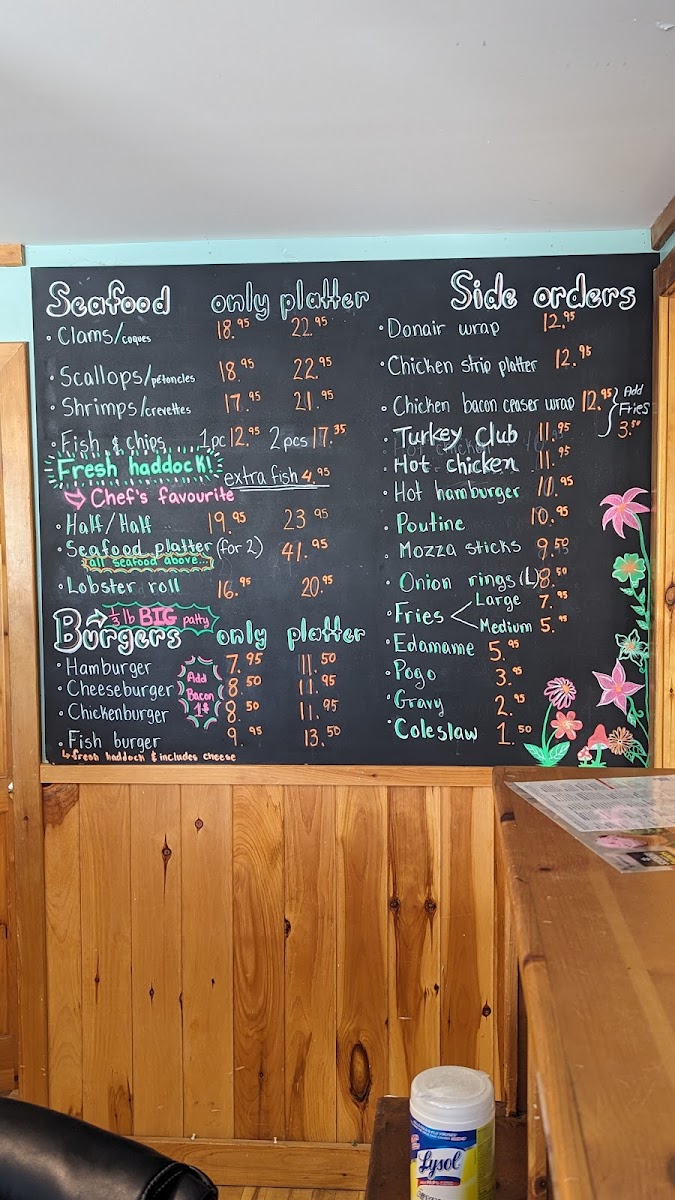 Seafood only platter
• Clams/coques 18.95 22.95
• Scallops/pétoncles 18.95 22.95
• Shrimps/crevettes 17.95 21.95
• Fish & chips 1pc 12.95 2pcs 17.35
Fresh haddock!
extra fish 4.95
Chef's favourite
• Half/Half 19.95 23.95
• Seafood platter (for 2) 41.95
all seafood above...
• Lobster roll 16.95 20.95
1/3 lb BIG patty
Burgers only platter
• Hamburger 7.95 11.50
• Cheeseburger 8.50 11.95
• Chickenburger 8.50 11.95
Add
Bacon
1$
• Fish burger 9.95 13.50
↳ fresh haddock & includes cheese
Side orders
• Donair wrap 12.95
• Chicken strip platter 12.95
• Chicken bacon ceaser wrap 12.95
Add
Fries
3.50
• Turkey Club 11.95
• Hot chicken 11.95
• Hot hamburger 10.95
• Poutine 10.95
• Mozza sticks 9.50
• Onion rings (L) 8.50
• Fries Large 7.95
Medium 5.95
• Edamame 5.95
• Pogo 3.95
• Gravy 2.95
• Coleslaw 1.50
Lysol